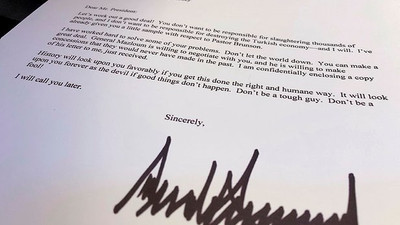 Dear Mr. President:
Let's work out a good deal! You don't want to be responsible for slaughtering thousands of
people, and I don't want to be responsible for destroying the Turkish economy—and I will. I've
already given you a little sample with respect to Pastor Brunson.
I have worked hard to solve some of your problems. Don't let the world down. You can make a
great deal. General Mazloum is willing to negotiate with you, and he is willing to make
concessions that they would never have made in the past. I am confidentially enclosing a copy
of his letter to me, just received.
History will look upon you favorably if you get this done the right and humane way. It will look
upon you forever as the devil if good things don't happen. Don't be a tough guy. Don't be a
fool!
I will call you later.
Sincerely,